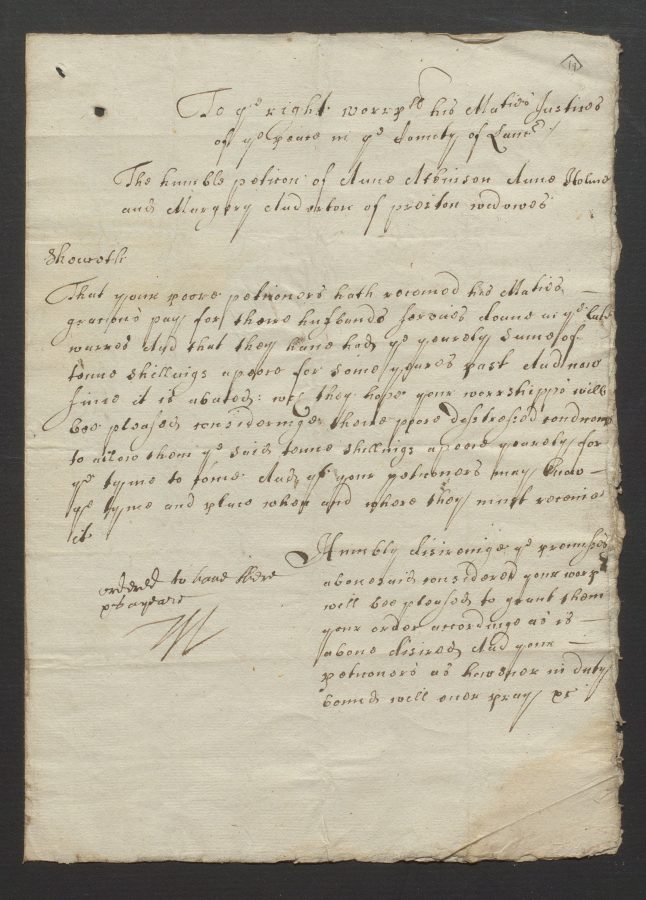 11
To ye right worrpll his Maties Justices
of ye peace in ye County of Lancr
The humble peticon of Anne Atkinson Anne Holme
and Margery Anderton of preston widowes
Sheweth
That your poore peticoners hath receiued his Maties
gracious pay for theire husbands servies donne in ye late
warres And that they haue had ye yearely sume of
tenne shillings apeece for some yeares past And now
since it is abated: wch they hope your worrshipps will
bee pleased consideringe there poore destressed condicons
to allow them ye said tenne shillings apeece yearely for
ye tyme to come And yt your peticoners may know
ye tyme and place when and where they must receiue
it
Humbly disireinge ye premisses
aboue said considered your worpps
will bee pleased to grant them
your order accordinge as is
aboue disired And your
peticoners as howeuer in duty
bound will euer pray &c
ordered to haue there
xs a yeare